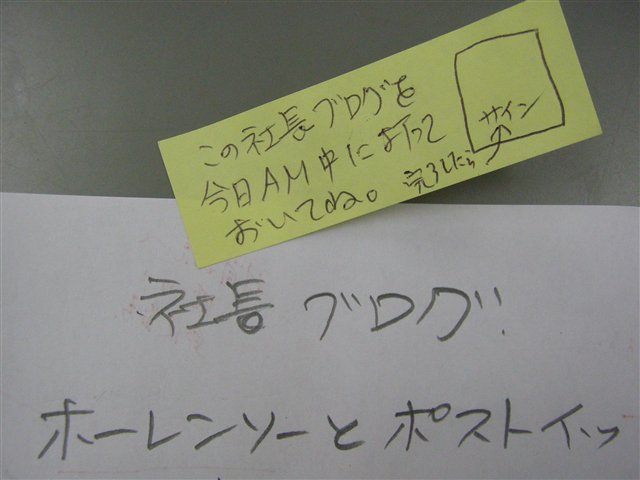 この社長ブログを
今日AM中に打って
おいてね。
完了したら
サイン
社長ブログ!
ホーレンソーとポストイッ